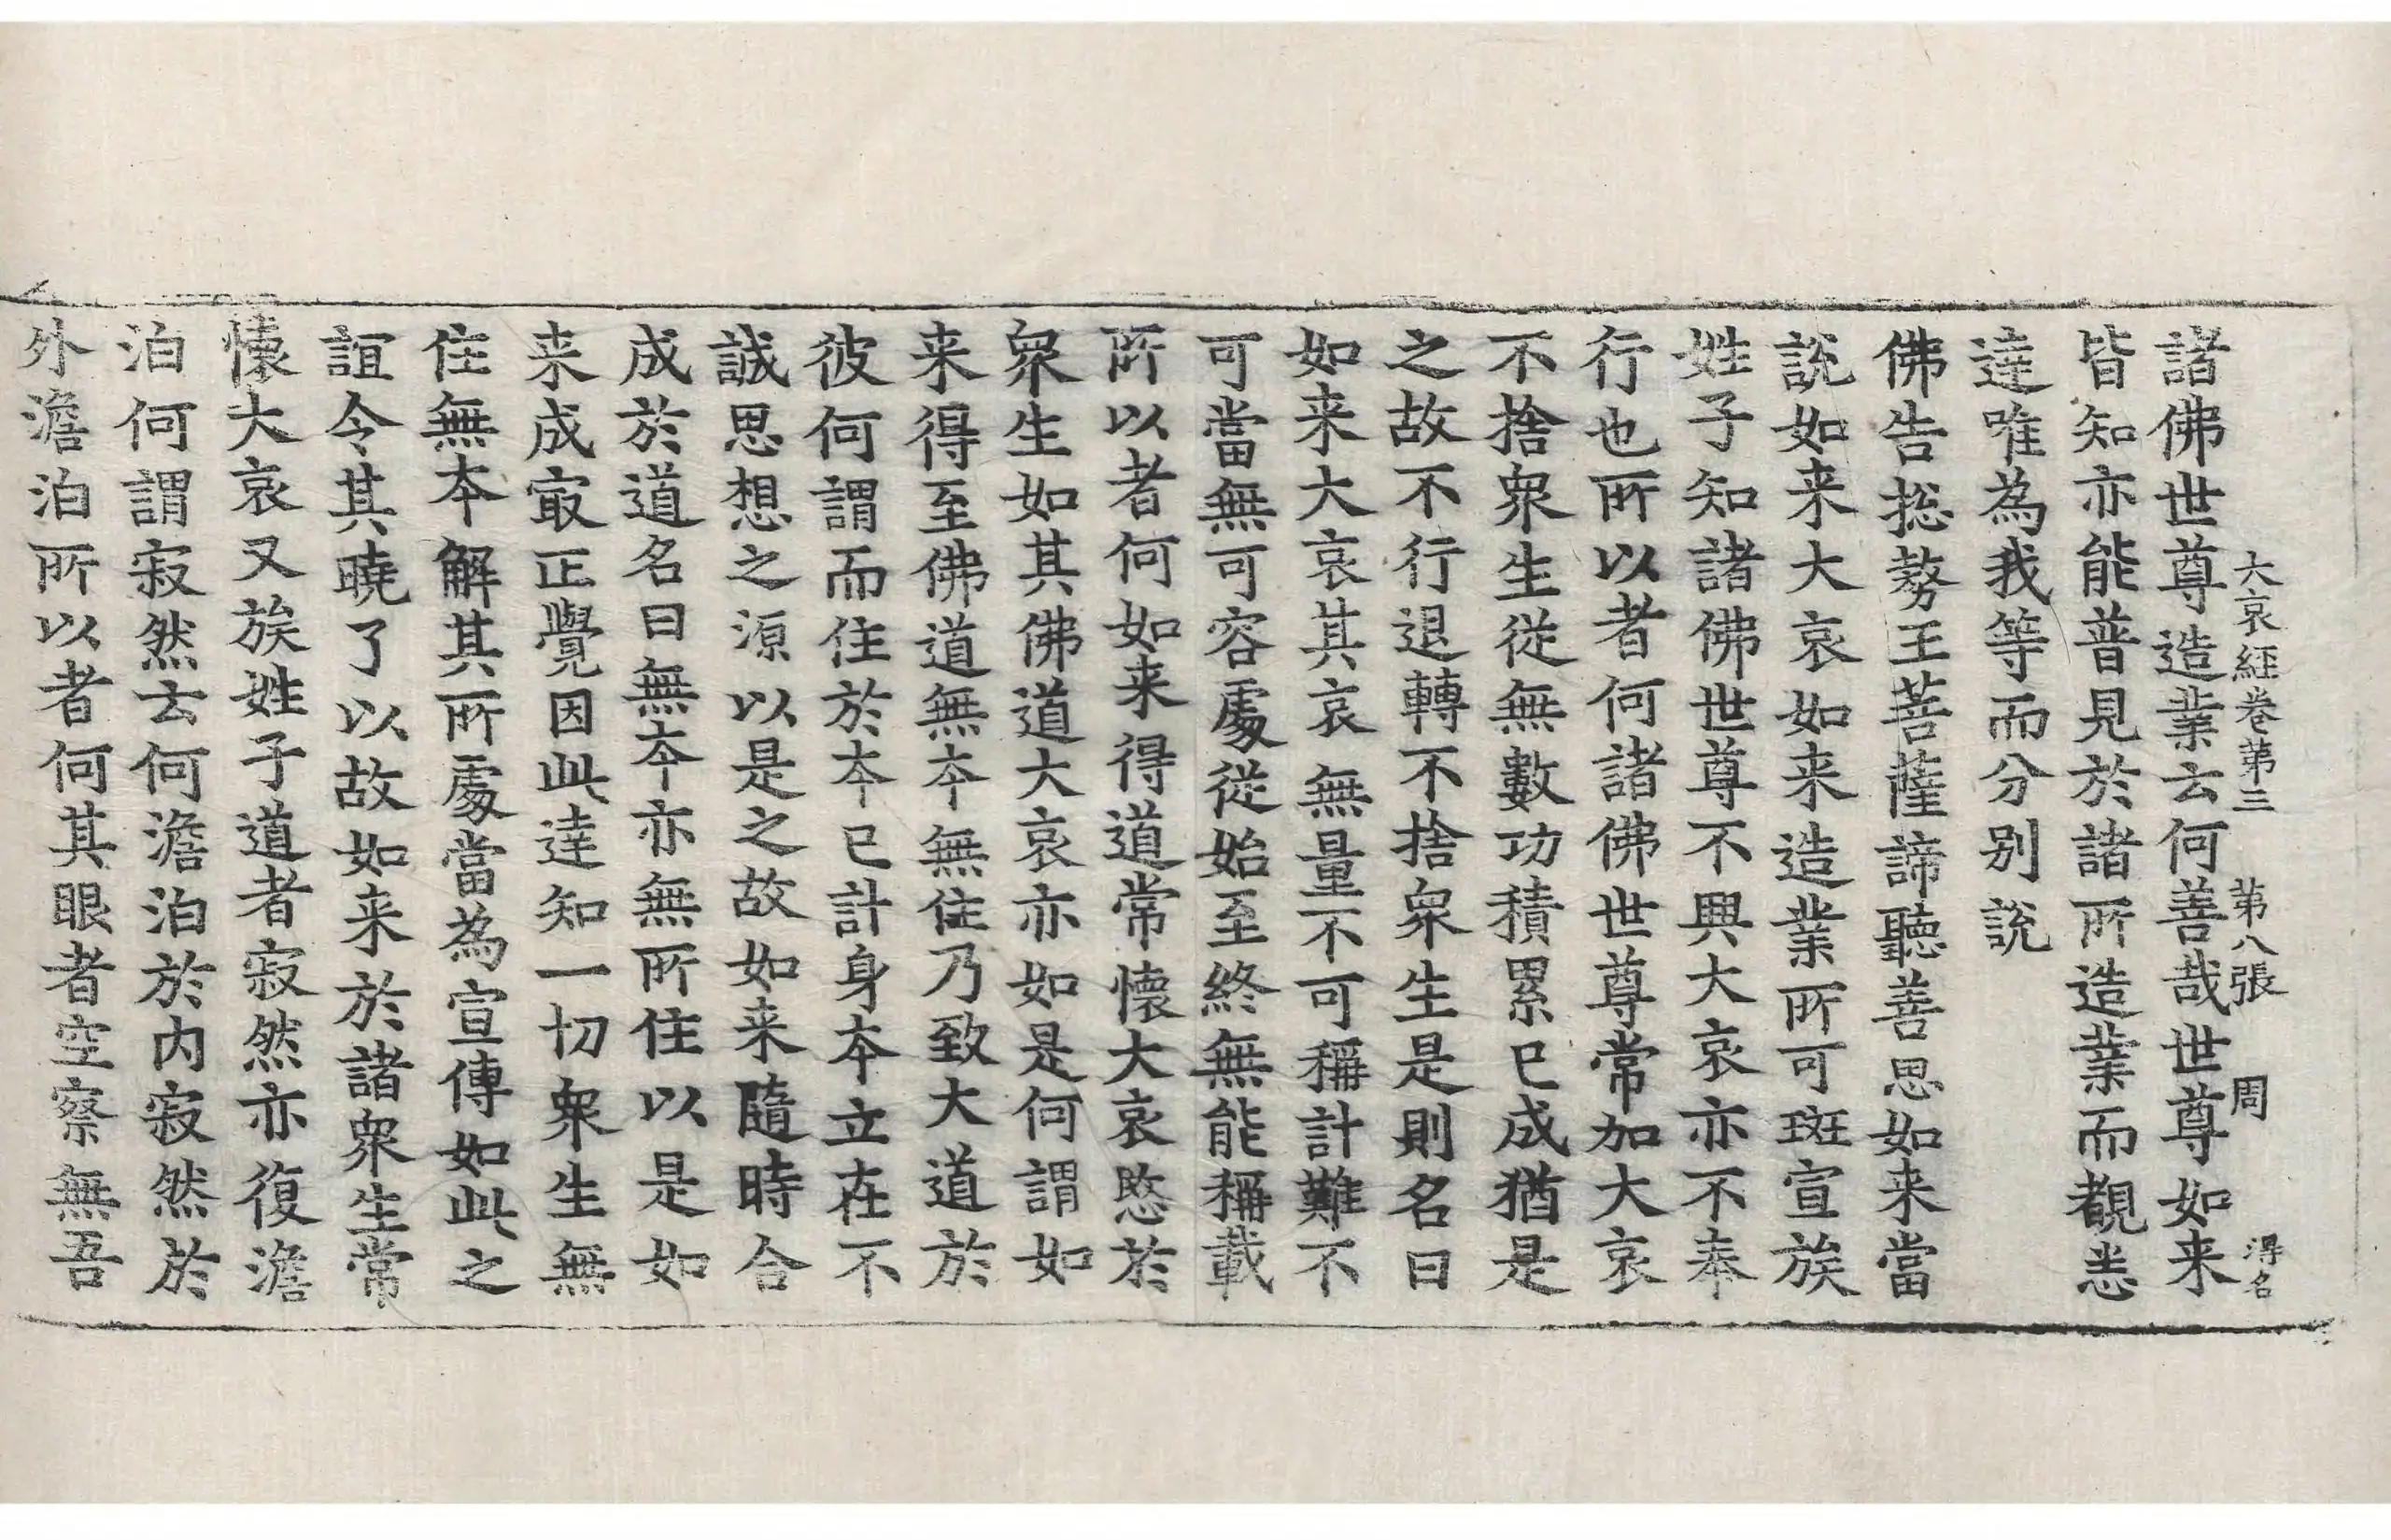 大哀經卷第三 第八張 周 得名
諸佛世尊造業云何善哉世尊如来
皆知亦能普見於諸所造業而覩悉
達唯為我等而分別說
佛告揔勢王菩薩諦聽善思如来當
說如来大哀如来造業所可班宣族
姓子知諸佛世尊不興大哀亦不奉
行也所以者何諸佛世尊常加大哀
不捨衆生從無數功積累已成猶是
之故不行退轉不捨衆生是則名曰
如来大哀其哀無量不可稱計難不
可當無可容處從始至終無能稱載
所以者何如来得道常懷大哀愍於
衆生如其佛道大哀亦如是何謂如
来得至佛道無夲無住乃致大道於
彼何謂而住於夲已計身夲立在不
誠思想之源以是之故如来隨時合
成於道名曰無夲亦無所住以是如
来成㝡正覺因此達知一切衆生無
住無夲解其所處當為宣傳如此之
誼令其曉了以故如来於諸衆生常
懷大哀又族姓子道者寂然亦復澹
泊何謂寂然云何澹泊於內寂然於
外澹泊所以者何其眼者空察無吾